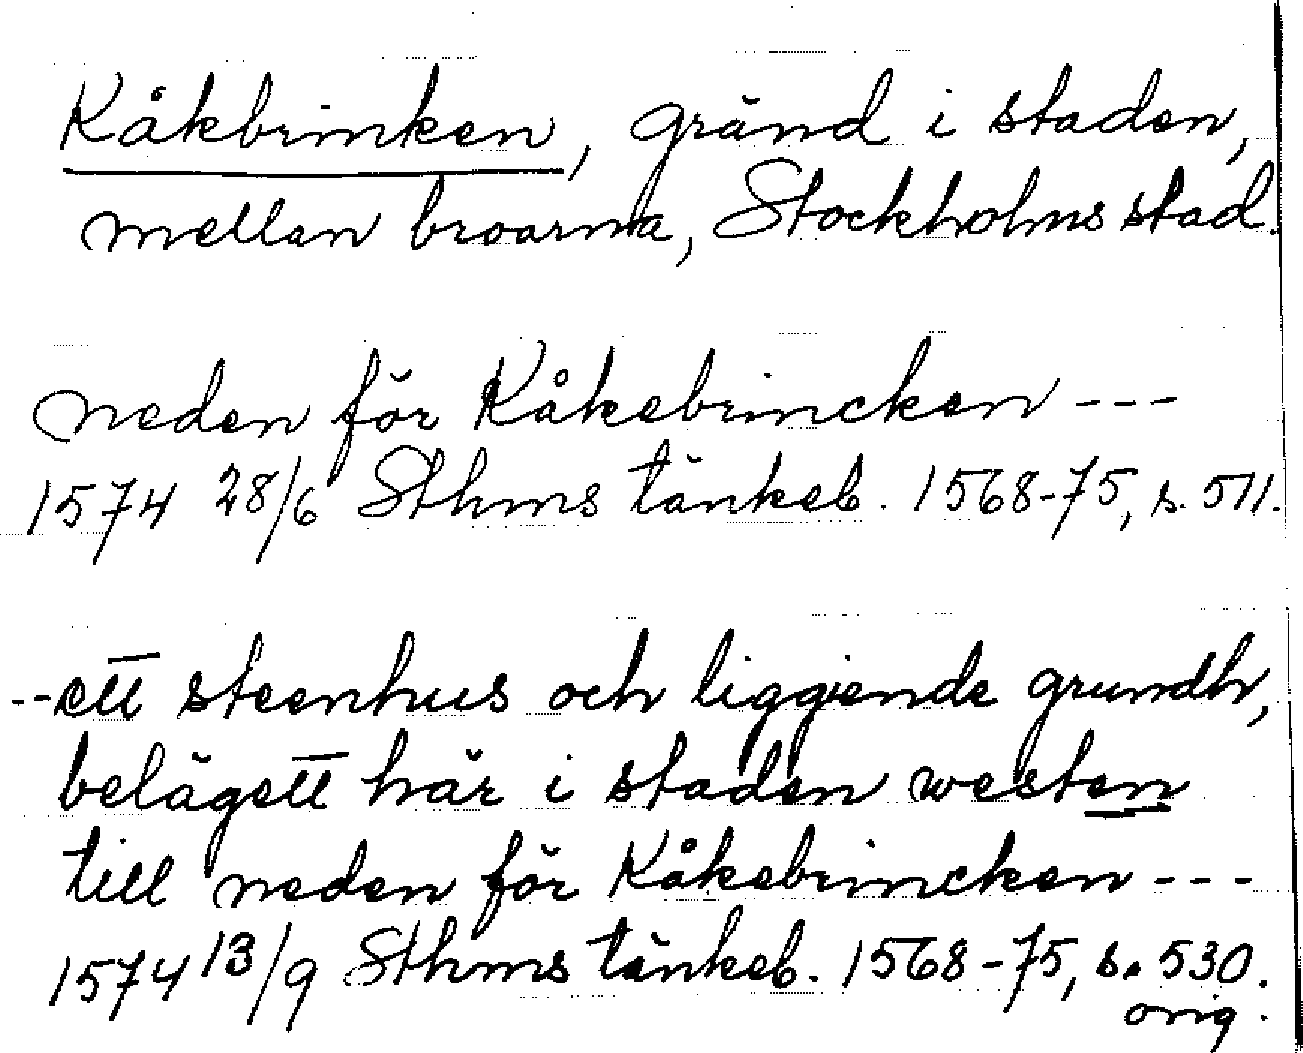 Kåkbrinken, gränd i staden,
mellan broarna, Stockholms stad.
neden för Kåkebrincken ---
1574 28/6 Sthms tänkeb. 1568-75, s. 511.
--ett steenhus och liggiende grundh,
belägett här i staden westen
till neden för Kåkebrincken ---
1574 13/9 Sthms tänkeb. 1568-75, s. 530.
orig.